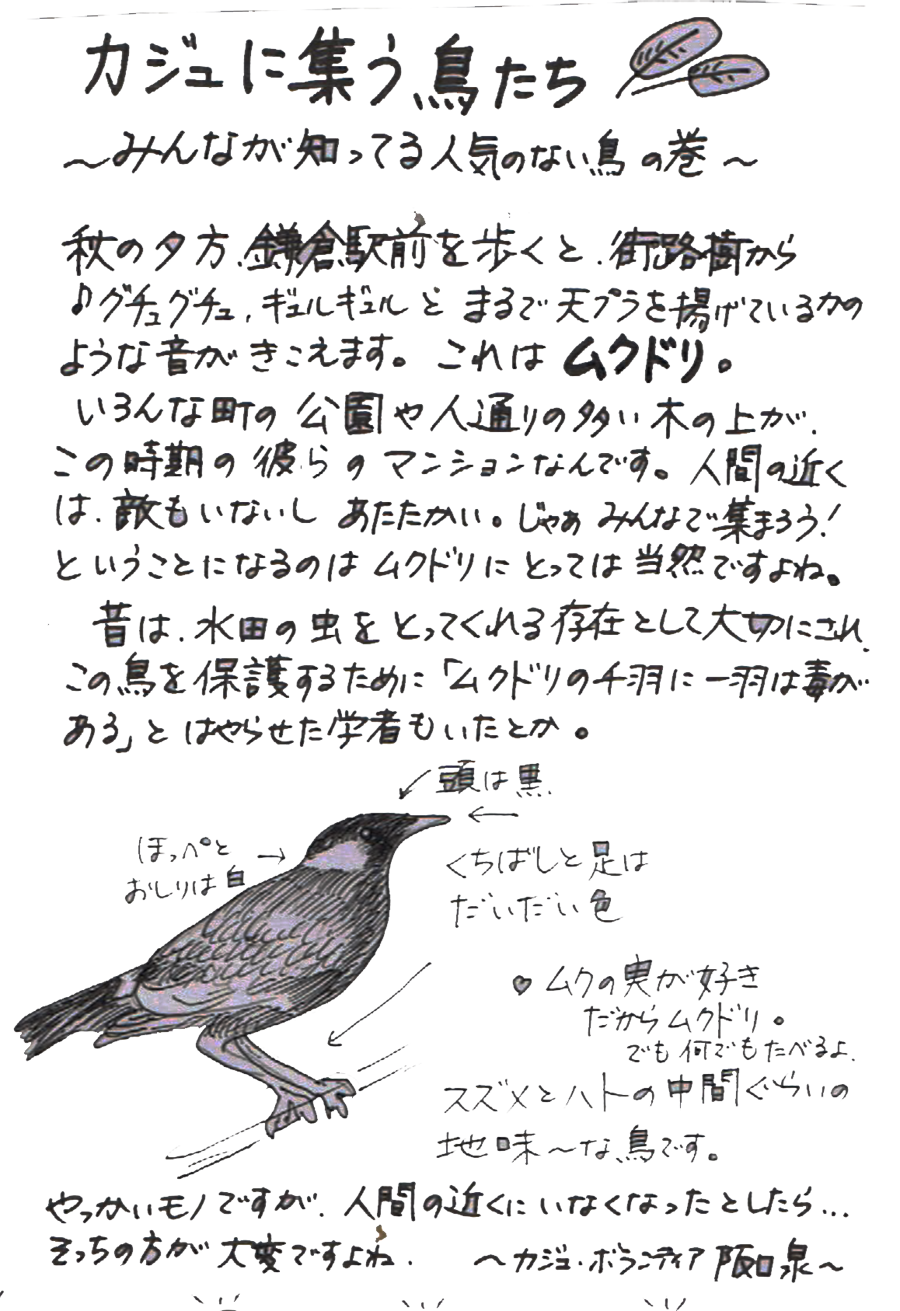 カジュに集う鳥たち
～みんなが知ってる人気のない鳥の巻～
秋の夕方、鎌倉駅前を歩くと、街路樹から
♪グチュグチュ、ギュルギュルと まるで天プラを揚げているかの
ような音がきこえます。これはムクドリ。
いろんな町の公園や人通りの多い木の上が、
この時期の彼らのマンションなんです。人間の近く
は、敵もいないし あたたかい。じゃあ みんなで集まろう!
ということになるのはムクドリにとっては当然ですよね。
昔は、水田の虫をとってくれる存在として大切にされ、
この鳥を保護するために「ムクドリの千羽に一羽は毒が
ある」とはやらせた学者もいたとか。
頭は黒
ほっぺと
おしりは白
くちばしと足は
だいだい色
♡ムクの実が好き
だからムクドリ。
でも何でもたべるよ。
スズメとハトの中間ぐらいの
地味～な鳥です。
やっかいモノですが、人間の近くにいなくなったとしたら…
そっちの方が大変ですよね。 ～カジュ・ボランティア 阪口泉～